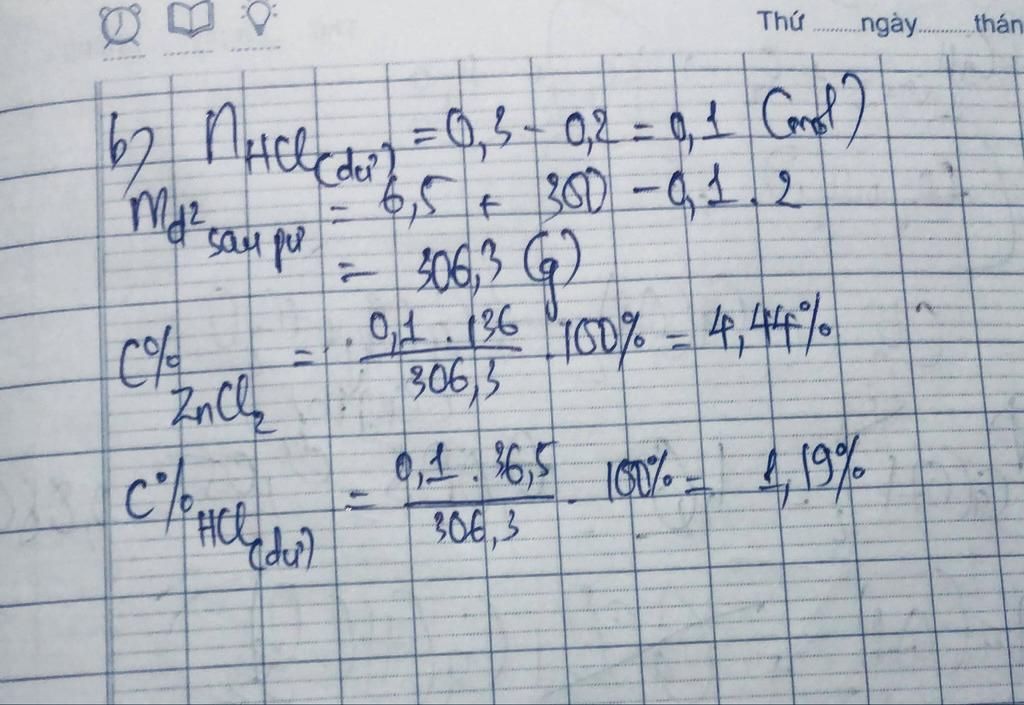 Thứ ..........ngày..........thán
b) nHCl(dư) = 0,3 - 0,2 = 0,1 (mol)
md² sau pư = 6,5 + 300 - 0,1 . 2
= 306,3 (g)
C% ZnCl2 = 0,1 . 136 / 306,3 . 100% = 4,44%
C% HCl(dư) = 0,1 . 36,5 / 306,3 . 100% = 1,19%